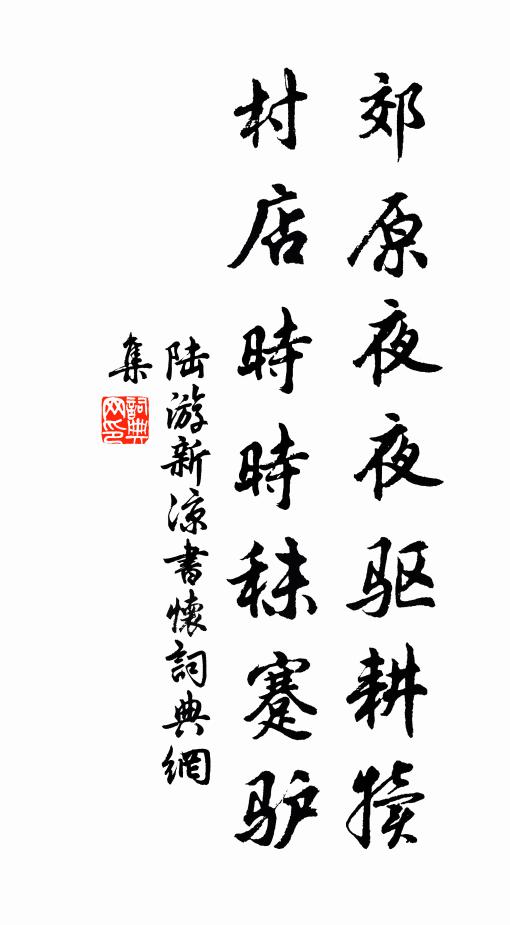 郊原夜夜驱耕犊
村店時時秣蹇驴
陆游新凉書懷詞典網
集
詞典网印